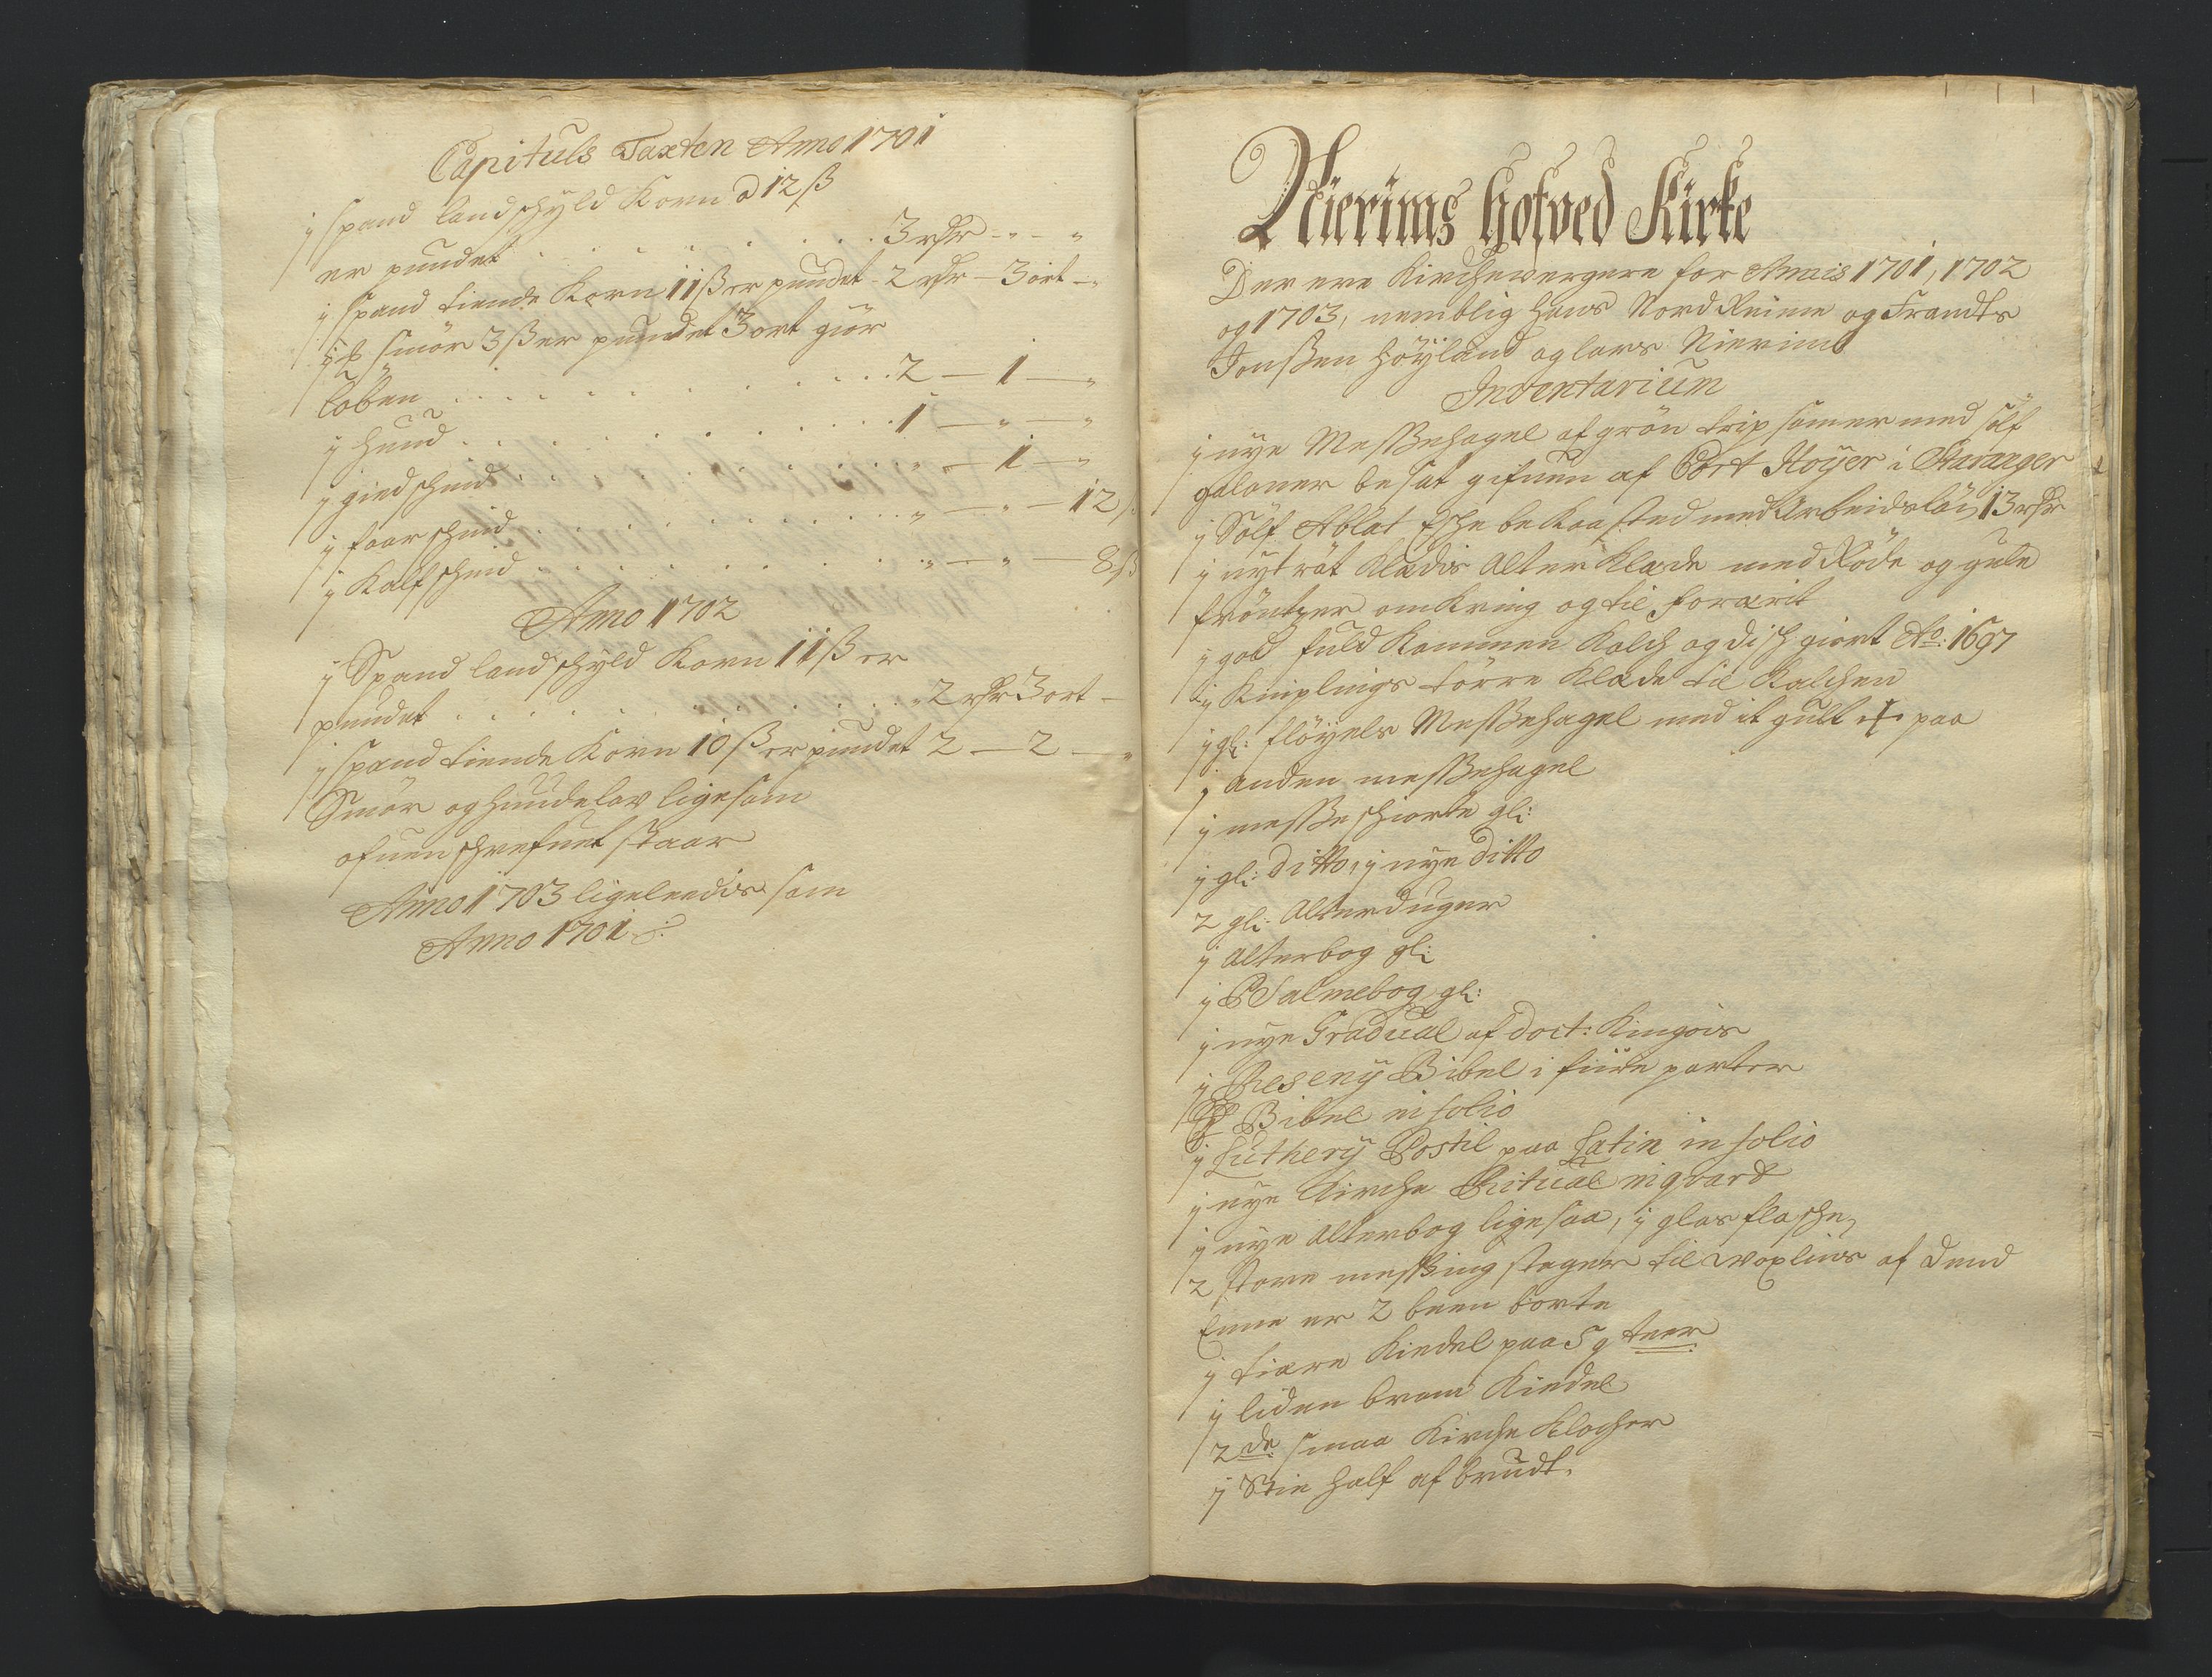 Capituls Taxten Anno 1701
j spand landschyld Korn a 12 ß
er pundet . . . . . . . . . 3 rdr - " - "
j spand tiende Korn 11 ß er pundet - 2 rdr - 3 ort - "
smör 3 ß er pundet 3 ort giör
löben . . . . . . . . . . . . 2 - 1 - "
j huud . . . . . . . . . . . . 1 - " - "
j giedschind . . . . . . . . . . " - 1 - "
j faarschind . . . . . . . . . . " - " - 12 ß
j Kalfschind . . . . . . . . . . " - " - 8 ß
Anno 1702
j Spand landschyld Korn 11 ß er
pundet . . . . . . . . . . 2 rdr 3 ort -
j spand tiende Korn 10 ß er pundet 2 - 2 - "
Smör og hundelav ligesom
ofuenschrefuet staar
Anno 1703 ligeleedis som
Anno 1701
Nierims hofved Kirke
Der ere Kirchewergere for Annis 1701, 1702
og 1703, nemblig hans Nord Reime og Frandts
Jonßen höÿland og lars Nierim
Inventarium
j nye Messehagel af grön trip som er med sölf
galoner besat gifuen af Cort Hoÿer i Stavanger
j Sölf Ablat Esche bekaasted med Arbeidslön 13 rdr
j nyt röt Kladis Alter Klæde med Röde og gule
fröntzer omkring og til forærit
j god fuldkommen Kalch og disch giort Ao: 1697
j Kniplings törre Klæde til Kalchen
j gl: flöyels Messehagel med it gult + paa
j anden messehagel
j messe schiorte gl:
j gl: Ditto, j nye Ditto
2 gl: Alterduger
j Alterbog gl:
j PSalmebog gl:
j nye Gradual af Doct: Kingois
j Reseny Bibel i fiire parter
j Bibel in folio
j Lutherÿ Postil paa Latin in folio
j nye Kirche Ritual in qvart
j nye Alterbog ligesaa, j glas flasche,
2 store messing stager til woxlius af dend
Eenne er 2 been borte
j tiære Kiedel paa 5 g teer
j liden brand Kiedel
2 de smaa Kirche Klocher
j Stie half afbrudt.